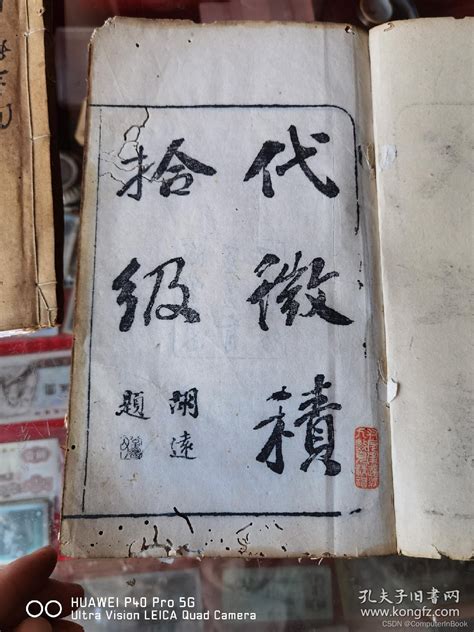 代微積
拾級
胡遠
題
HUAWEI P40 Pro 5G
Ultra Vision LEICA Quad Camera
孔夫子旧书网
www.kongfz.com
CSDN @ComputerInBook